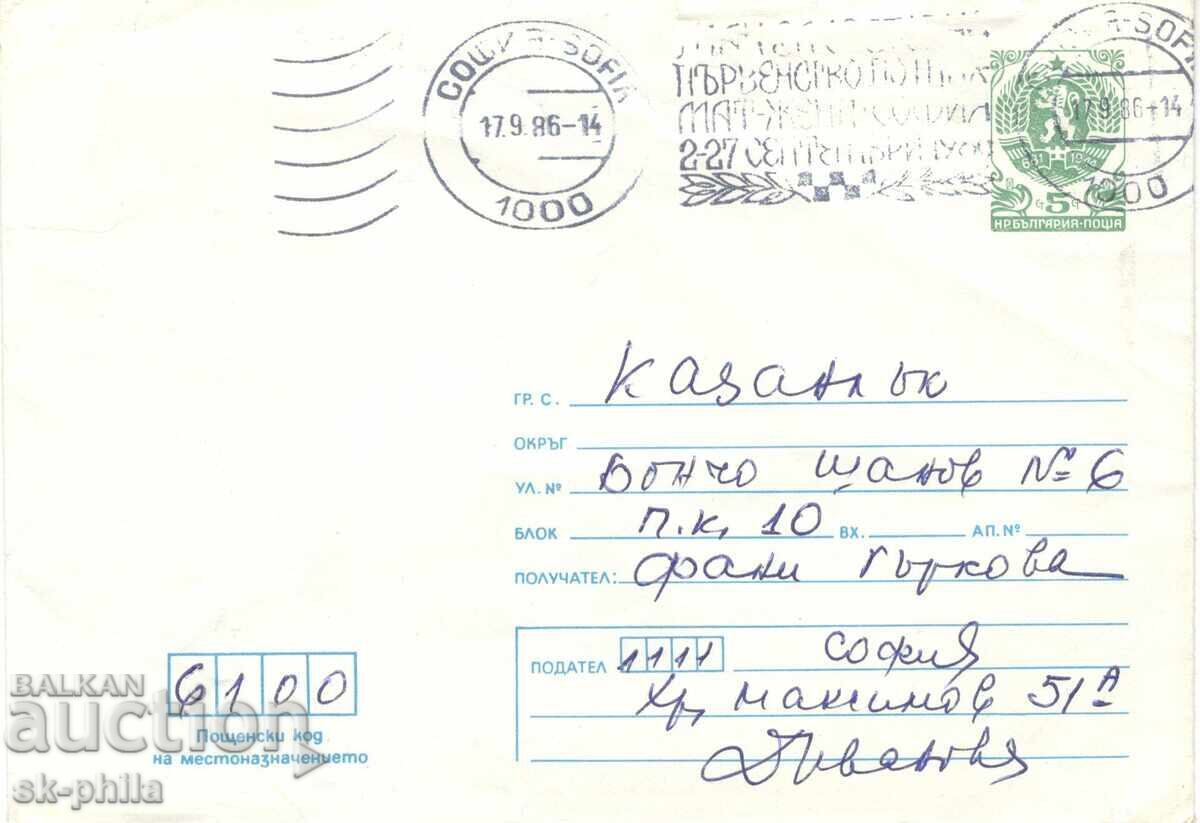 СОФИЯ-SOFIA
17.9.86-14
1000
ПЪРВЕНСТВО ПО ШАХ
МАТ-ЖЕНИ-СОФИЯ
2-27 СЕПТЕМВРИ 1986
17.9.86-14
1000
681 1944
5
НР БЪЛГАРИЯ·ПОЩА
ГР. С. Казанлък
ОКРЪГ
УЛ. № Бончо Шанов № 6
БЛОК п.к. 10 ВХ. АП. №
ПОЛУЧАТЕЛ: Фани Гъркова
ПОДАТЕЛ 1111 София
Хр. Максимов 51А
6100
Пощенски код
на местоназначението
BALKAN
auction
sk-phila